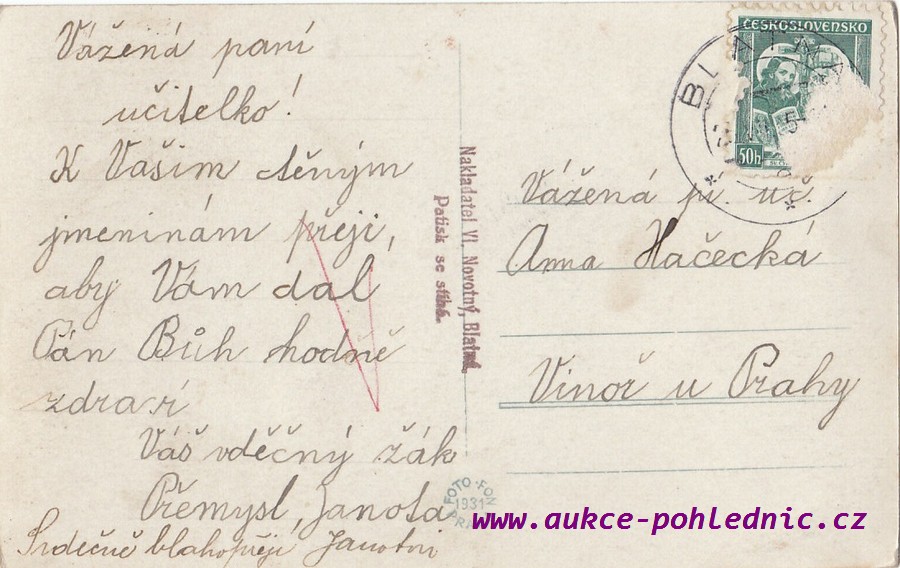 Vážená paní
učitelko!
K Vašim ctěným
jmeninám přeji,
aby Vám dal
Pán Bůh hodně
zdraví
Váš vděčný žák
Přemysl Janota
Srdečně blahopřeji Janotovi
Nakladatel Vl. Novotný, Blatná.
Patisk se stíhá.
FOTO-FON
1931
ČESKOSLOVENSKO
50h
BLATNÁ
Vážená pí. uč.
Anna Hačecká
Vinoř u Prahy
www.aukce-pohlednic.cz